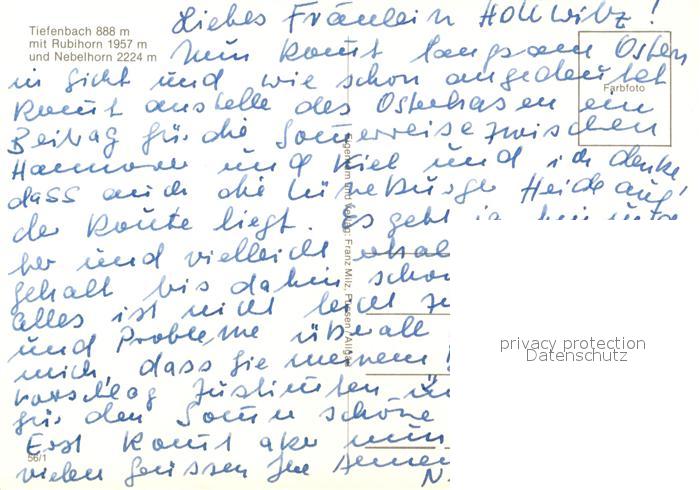 Tiefenbach 888 m
mit Rubihorn 1957 m
und Nebelhorn 2224 m
Liebes Fräulein Hollwitz!
Nun komt langsam Ostern
in Sicht und wie schon angedeutet
Farbfoto
komt anstelle des Osterhasen ein
Beitrag für die Sommerreise zwischen
Hannover und Kiel und ich denke
dass auch die Lüneburger Heide auf
der Route liegt. Es geht ja
her und vielleicht
gehalt bis dahin schon
alles ist nicht leicht zu
und Probleme überall
privacy protection
Datenschutz
mich, dass Sie meinem
Vorschlag zustimten
für den Somer schöne
Erst komt aber nun
56/1
vielen Grüssen Ihr
N.
Eigentum und Verlag: Franz Milz, Füssen / Allgäu